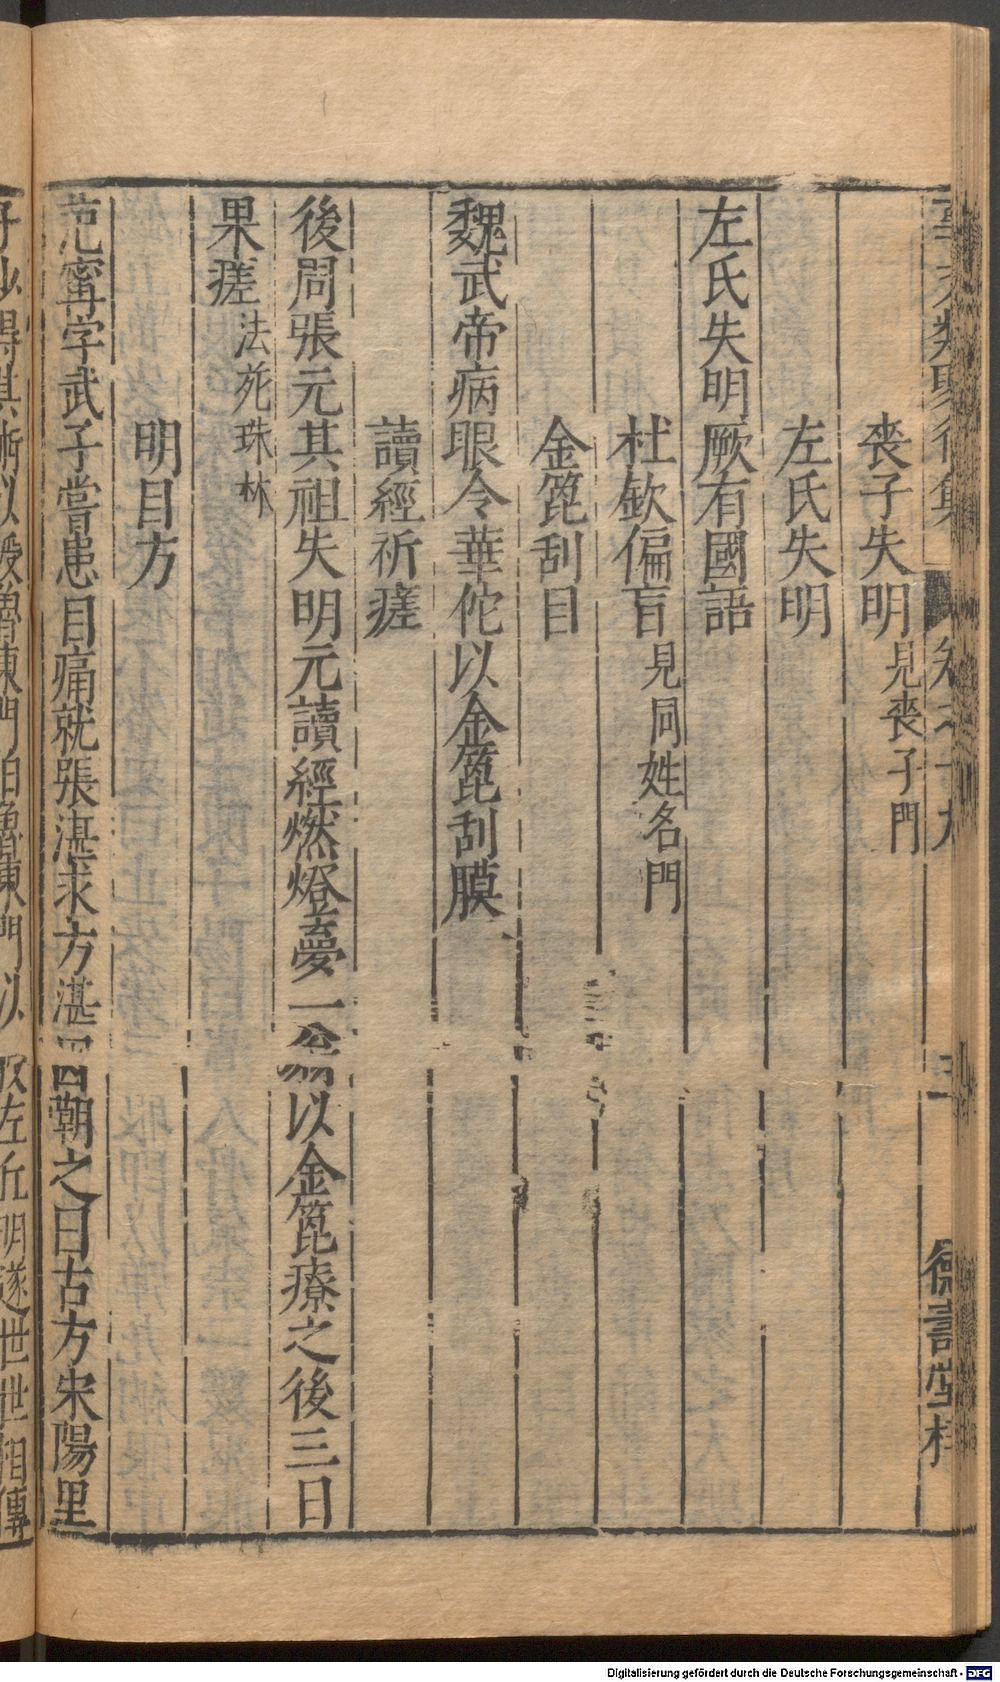 喪子失明 見喪子門
左氏失明
左氏失明厥有國語
杜欽偏盲 見同姓名門
金篦刮目
魏武帝病眼令華佗以金篦刮膜
讀經祈瘥
後周張元其祖失明元讀經燃燈夢一翁以金篦療之後三日
果瘥 法苑珠林
明目方
范甯字武子嘗患目痛就張湛求方湛因嘲之曰古方宋陽里
子少得其術以授魯東門伯魯東門以 授左丘明遂世世相傳
Digitalisierung gefördert durch die Deutsche Forschungsgemeinschaft - DFG